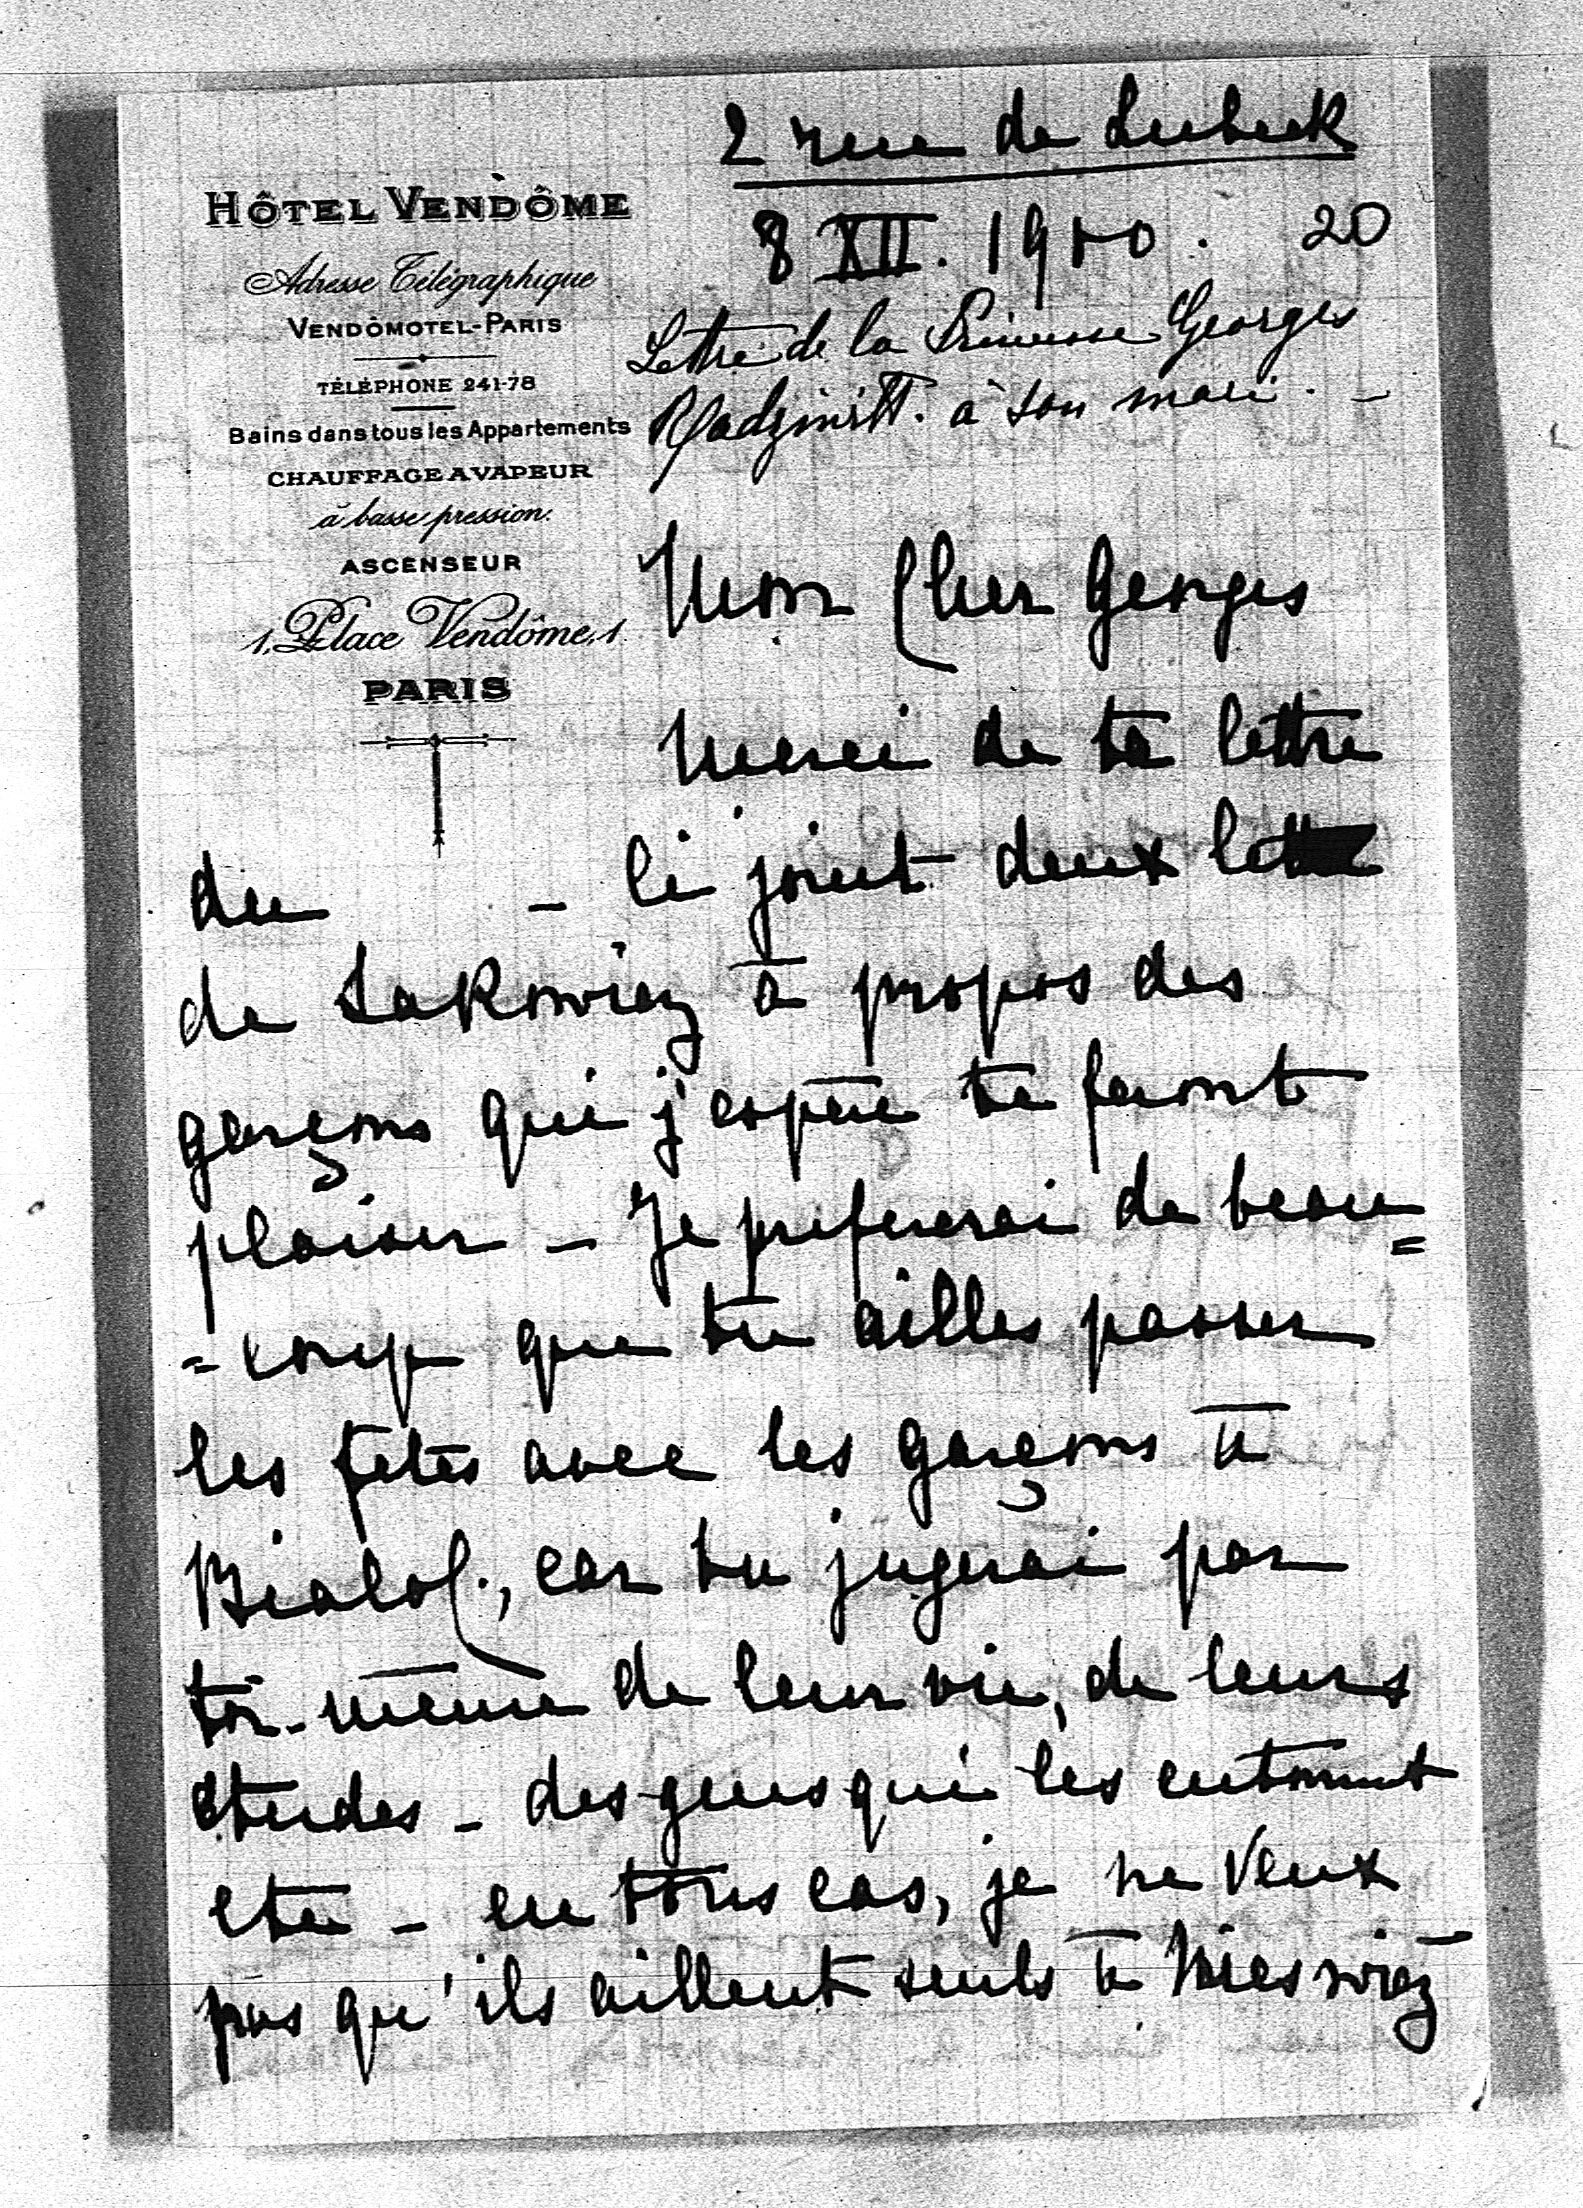 2 rue de Lubeck
HÔTEL VENDÔME
8 XII. 1900. 20
Adresse Télégraphique
VENDÔMOTEL-PARIS
Lettre de la Princesse Georges
TÉLÉPHONE 241-78
Radziwill. à son mari. -
Bains dans tous les Appartements
CHAUFFAGE A VAPEUR
à basse pression.
ASCENSEUR
Mon Cher Georges
1, Place Vendôme, 1.
PARIS
Merci de ta lettre
du - Ci joint deux
de à propos des
garçons qui j'espère te feront
plaisir - Je prefererai de beau=
=coup que tu ailles passer
les fetes avec les garçons à
Bialol., car tu jugerai par
toi-même de leur vie, de leurs
etudes - des gens qui les entourent
etc - en tous cas, je ne veux
pas qu'ils aillent seuls à Nieswiez